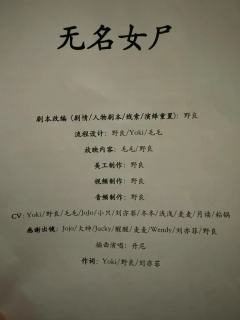 无名女尸
剧本改编（剧情/人物剧本/线索/演绎重置）：野良
流程设计：野良/Yoki/毛毛
放映内容：毛毛/野良
美工制作：野良
视频制作：野良
音频制作：野良
CV：Yoki/野良/毛毛/JoJo/小只/刘亦菲/冬冬/浅浅/麦麦/月读/松锅
感谢出镜：Jojo/大神/Jucky/醒醒/麦麦/Wendy/刘亦菲/野良
插曲演唱：丹尼
作词：Yoki/野良/刘亦菲